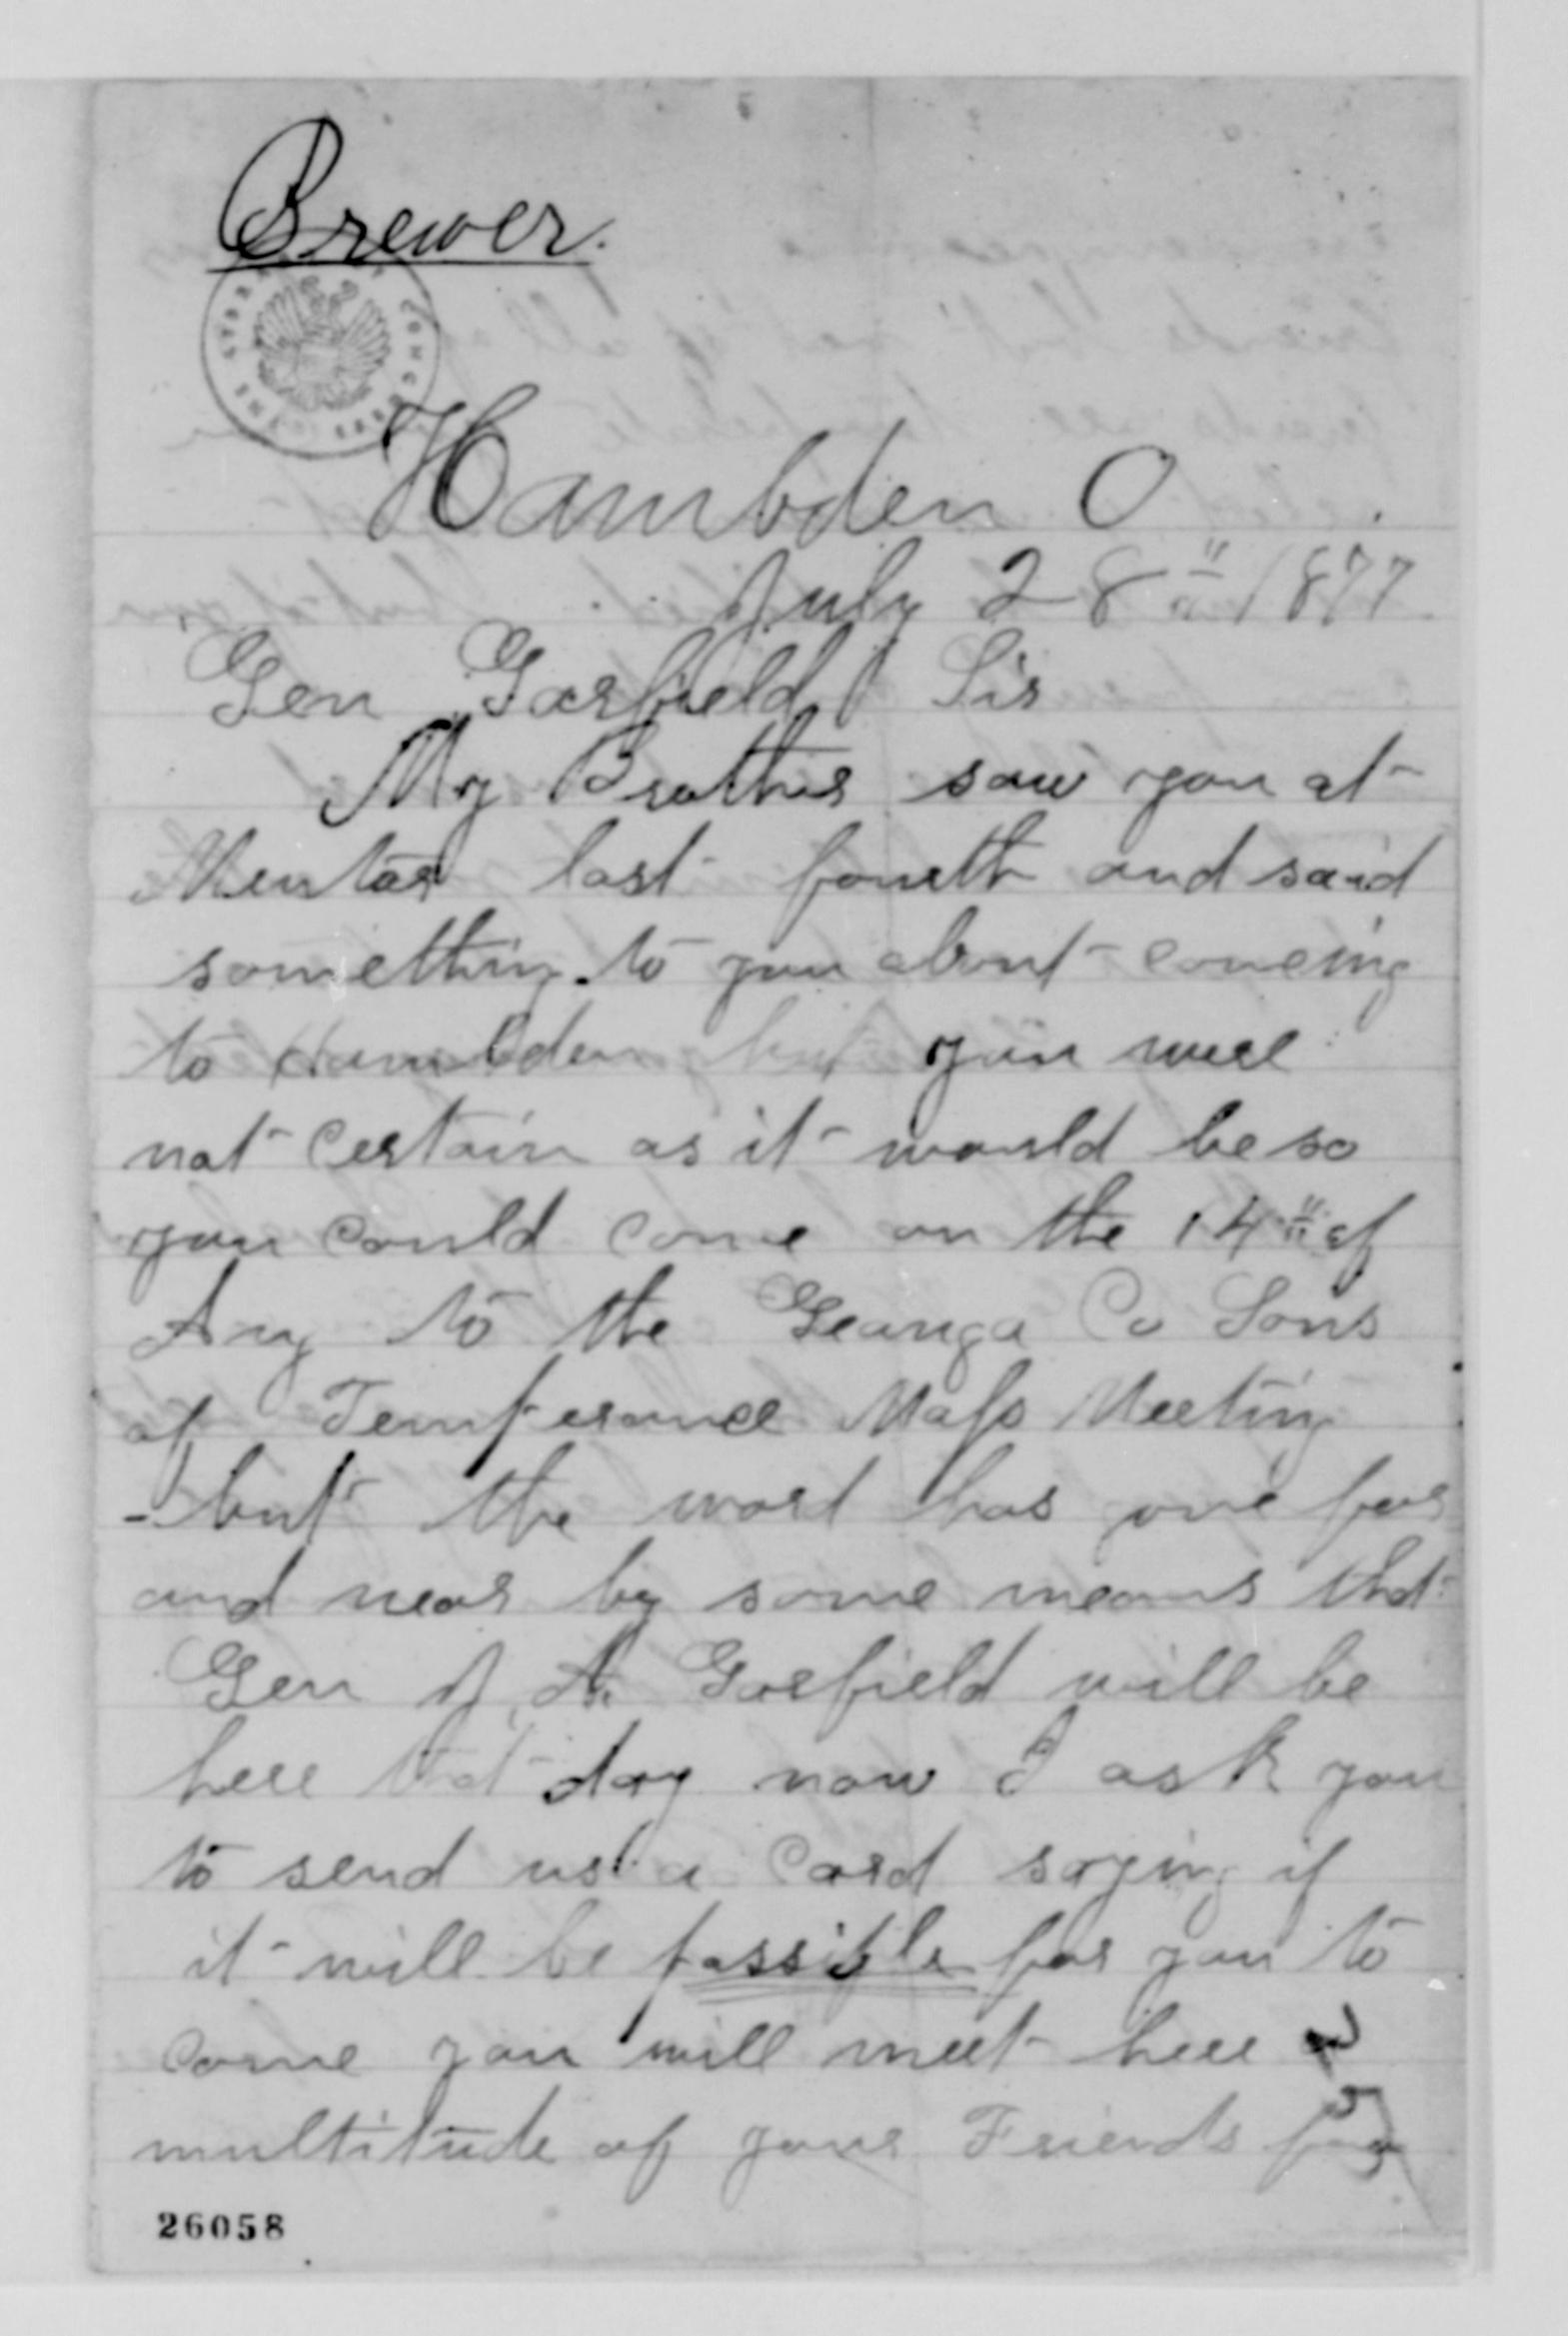 Brewer.
THE LIBRARY OF CONGRESS
Hambden O.
July 28" 1877
Gen Garfield Sir
My Brother saw you at
Mentor last fourth and said
something to you about comeing
to Hambden but you were
not certain as it would be so
you could come on the 14" of
Aug to the Geauga Co Sons
of Temperance Mass Meeting
- but the word has one far
and near by some means that
Gen J. A. Garfield will be
here that day now I ask you
to send us a Card saying if
it will be possible for you to
come you will meet here a
multitude of your Friends for
26058